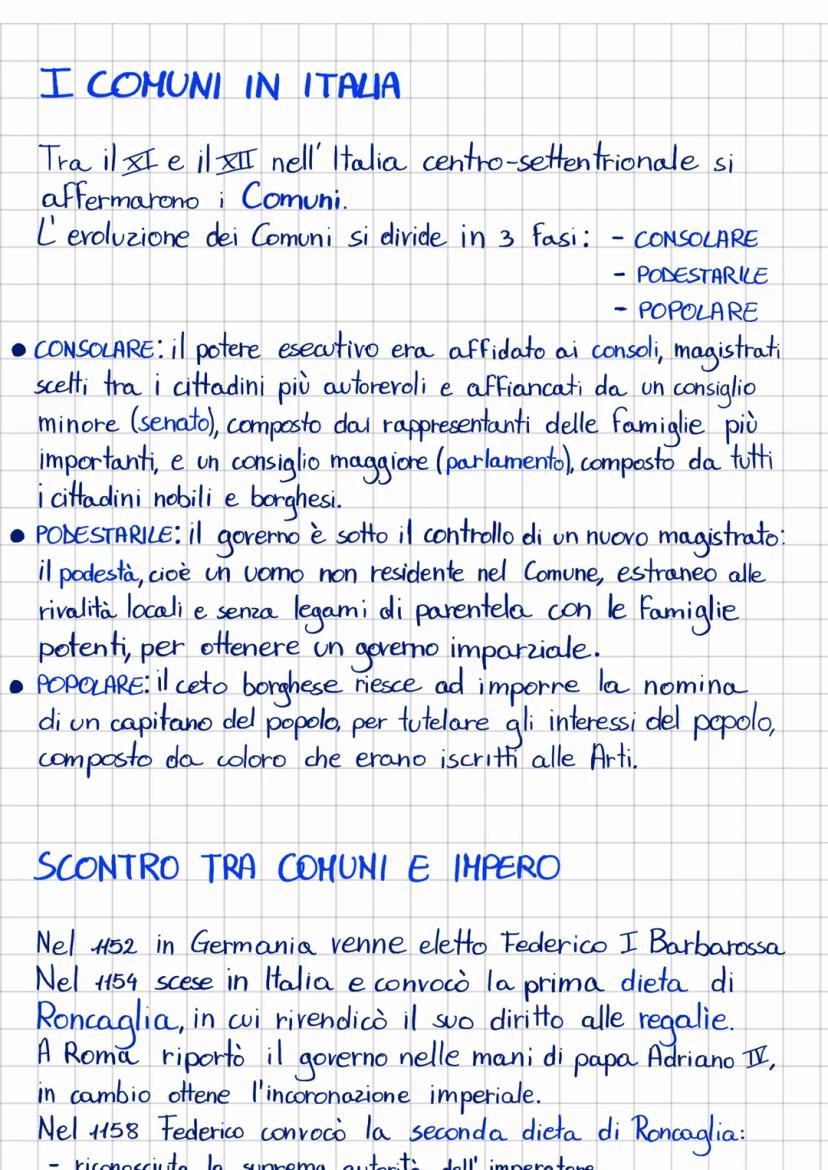 I COMUNI IN ITALIA
Tra il XI e il XII nell'Italia centro-settentrionale si
affermarono i Comuni.
L'evoluzione dei Comuni si divide in 3 fasi: - CONSOLARE
- PODESTARILE
- POPOLARE
• CONSOLARE: il potere esecutivo era affidato ai consoli, magistrati
scelti tra i cittadini più autorevoli e affiancati da un consiglio
minore (senato), composto dai rappresentanti delle famiglie più
importanti, e un consiglio maggiore (parlamento), composto da tutti
i cittadini nobili e borghesi.
• PODESTARILE: il governo è sotto il controllo di un nuovo magistrato:
il podestà, cioè un uomo non residente nel Comune, estraneo alle
rivalità locali e senza legami di parentela con le famiglie
potenti, per ottenere un governo imparziale.
• POPOLARE: il ceto borghese riesce ad imporre la nomina
di un capitano del popolo, per tutelare gli interessi del popolo,
composto da coloro che erano iscritti alle Arti.
SCONTRO TRA COMUNI E IMPERO
Nel 1152 in Germania venne eletto Federico I Barbarossa
Nel 1154 scese in Italia e convocò la prima dieta di
Roncaglia, in cui rivendicò il suo diritto alle regalie.
A Roma riportò il governo nelle mani di papa Adriano IV,
in cambio ottene l'incoronazione imperiale.
Nel 1158 Federico convocò la seconda dieta di Roncaglia:
- riconosciuta la suprema autorità dell'imperatore